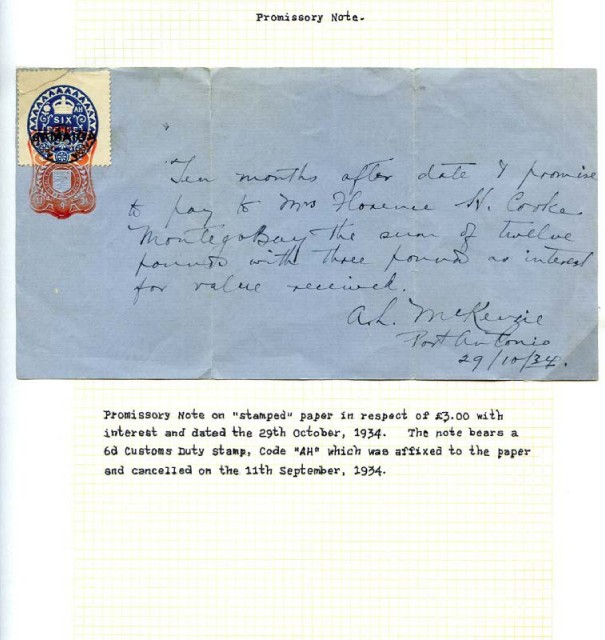 Promissory Note.
AH
SIX
JAMAICA
Ten months after date I promise
to pay to Mrs Florence H. Cooke
Montego Bay the sum of twelve
pounds with three pounds as interest
for value received.
McKenzie
Port Antonio
29/10/34.
Promissory Note on "stamped" paper in respect of £3.00 with
interest and dated the 29th October, 1934. The note bears a
6d Customs Duty stamp, Code "AH" which was affixed to the paper
and cancelled on the 11th September, 1934.